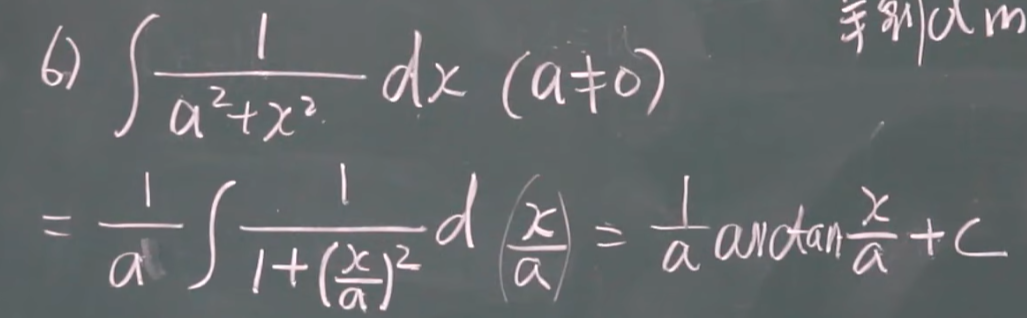 6) ∫ 1/(a²+x²) dx (a≠0)
= 1/a ∫ 1/(1+(x/a)²) d(x/a) = 1/a arctan x/a + C